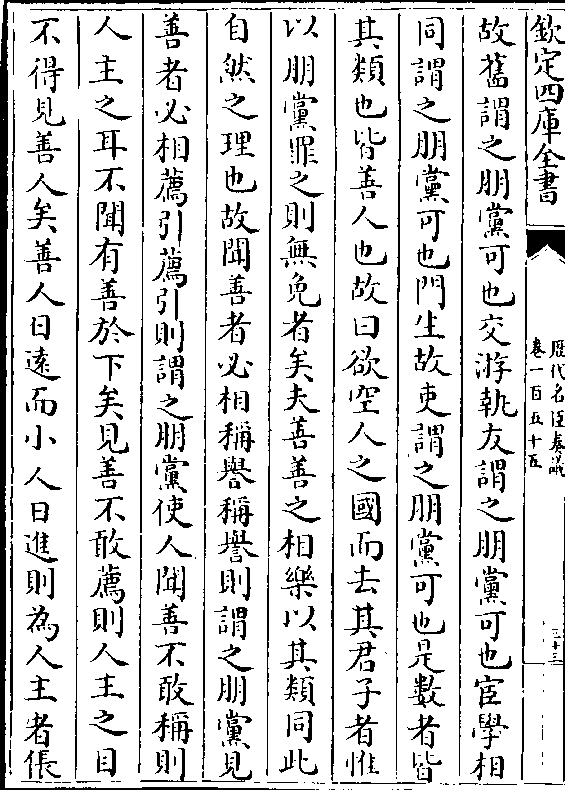 欽定四庫全書
歴代名臣奏議
卷一百五十五
三十三
故舊謂之朋黨可也交游執友謂之朋黨可也宦學相
同謂之朋黨可也門生故吏謂之朋黨可也是數者皆
其類也皆善人也故曰欲空人之國而去其君子者惟
以朋黨罪之則無免者矣夫善善之相樂以其類同此
自然之理也故聞善者必相稱譽稱譽則謂之朋黨見
善者必相薦引薦引則謂之朋黨使人聞善不敢稱則
人主之耳不聞有善於下矣見善不敢薦則人主之目
不得見善人矣善人日逺而小人日進則為人主者倀